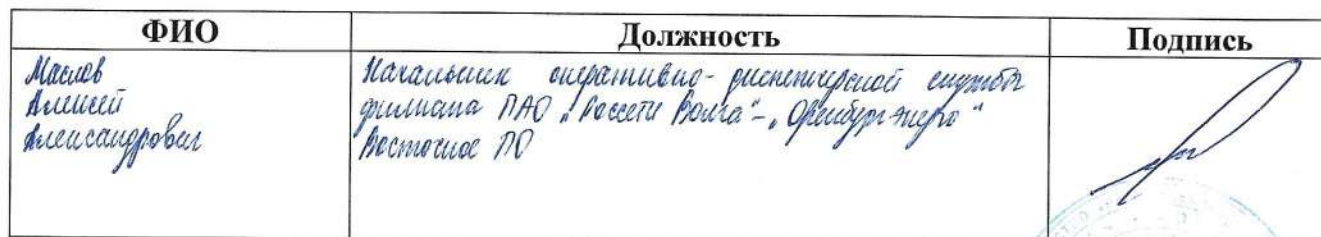 ФИО Должность Подпись
Маслов
Алексей
Александрович
Начальник оперативно-диспетчерской службы
филиала ПАО „Россети Волга“-„Оренбургэнерго“
Восточное ПО